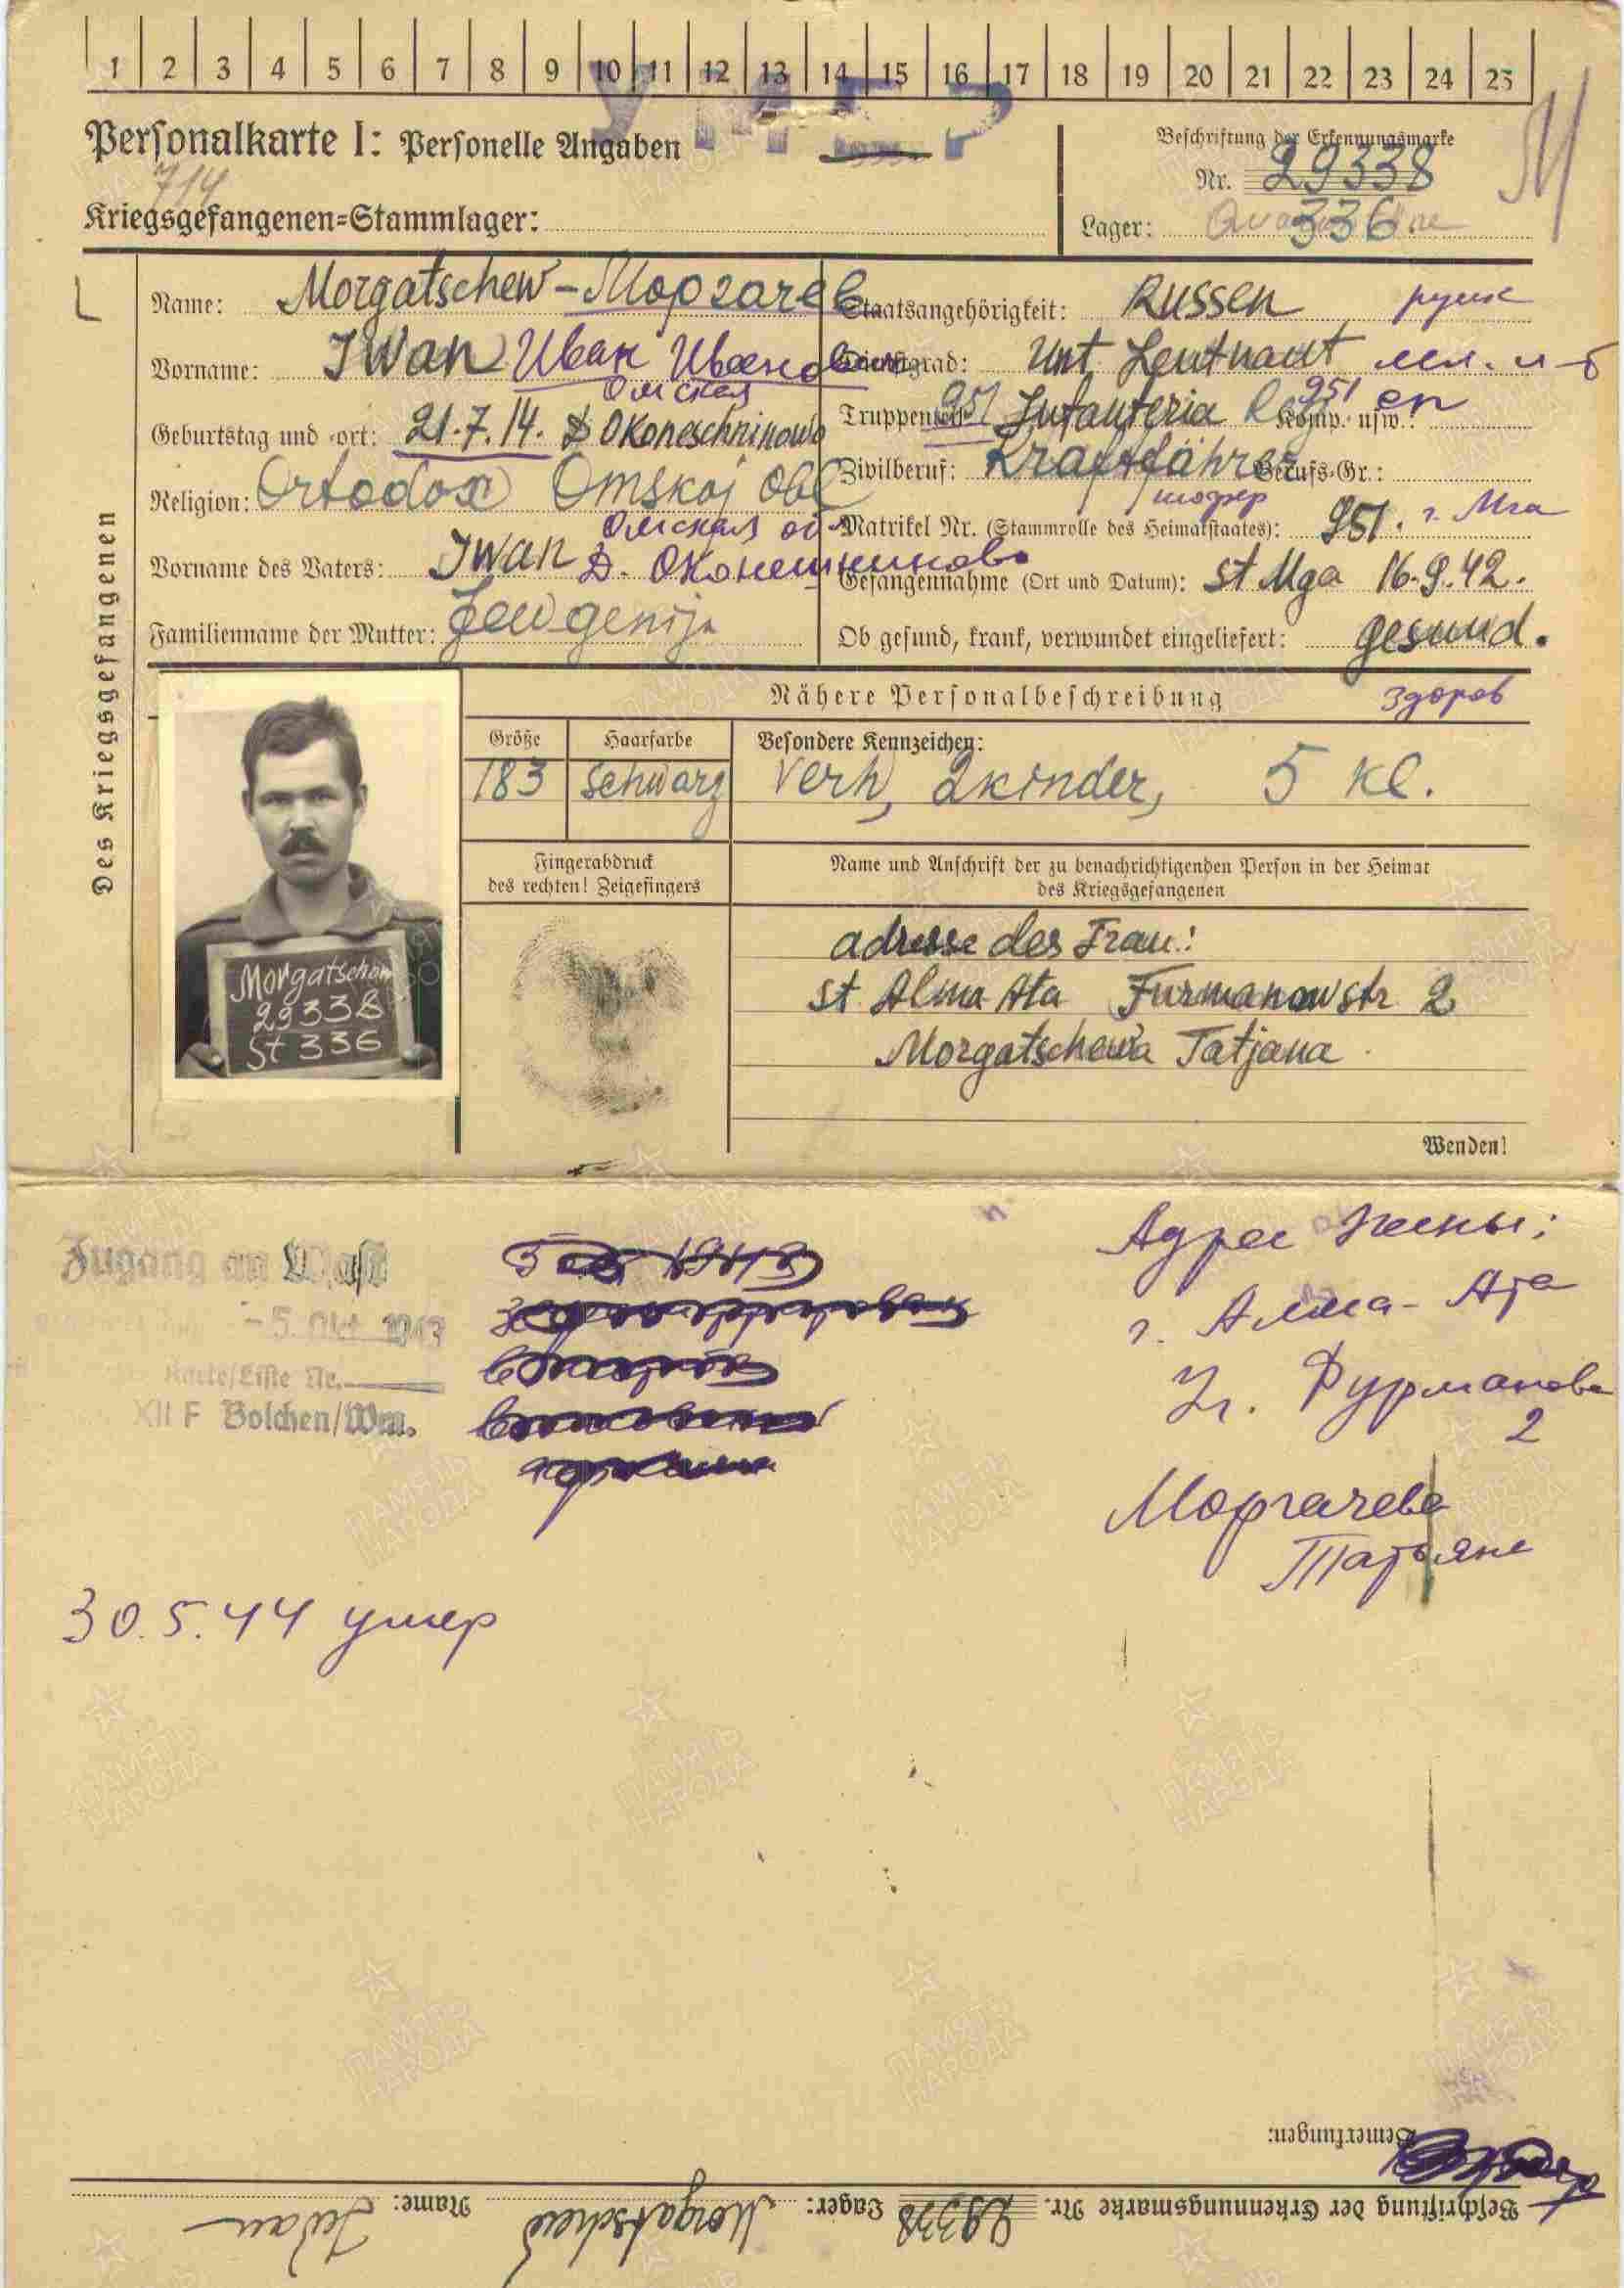 1 2 3 4 5 6 7 8 9 10 11 12 13 14 15 16 17 18 19 20 21 22 23 24 25
УМЕР
Personalkarte I: Personelle Angaben
Beschriftung der Erkennungsmarke
Nr. 29338
714
Kriegsgefangenen=Stammlager:
Lager: 336
M
Des Kriegsgefangenen
Name: Morgatschew - Моргачев
Staatsangehörigkeit: Russen русск
Vorname: Iwan Иван Иванович
Dienstgrad: Unt. Leutnaut мл. л-т
Омская
Geburtstag und -ort: 21.7.14. D Okoneschnikowo
Truppenteil: 951 Infanteria Reg Komp. usw.: 951 сп
Religion: Ortodox Omskoj Obl
Zivilberuf: Kraftfährer Berufs-Gr.:
шофер
Омская об
Matrikel Nr. (Stammrolle des Heimatstaates): 951. г. Мга
Vorname des Vaters: Iwan Д. Оконешниково
Gefangennahme (Ort und Datum): St Mga 16.9.42.
Familienname der Mutter: Jewgenija
Ob gesund, krank, verwundet eingeliefert: gesund.
Nähere Personalbeschreibung
здоров
Größe
Haarfarbe
Besondere Kennzeichen:
183
schwarz
Verh, 2 kinder, 5 Kl.
Fingerabdruck
des rechten! Zeigefingers
Name und Anschrift der zu benachrichtigenden Person in der Heimat
des Kriegsgefangenen
adresse des Frau:
St Alma Ata Furmanowstr 2
Morgatschewa Tatjana
Morgatschow
29338
St 336
Wenden!
Zugang an Wast
-5. Okt 1943
Karte/Liste Nr.
XII F Bolchen/Wm.
Адрес жены:
г. Алма-Ата
Ул. Фурманова
2
Моргачева
Татьяне
30.5.44 умер
Bemerkungen:
Beschriftung der Erkennungsmarke Nr. 29338 Lager: Morgatschew Name: Iwan
ПАМЯТЬ
НАРОДА